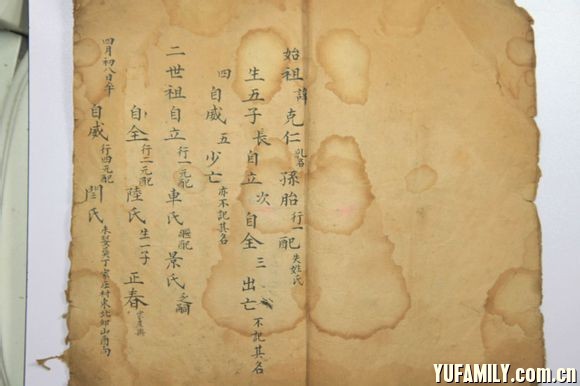 始祖諱克仁乳名孫胎行一配失姓氏
生五子長自立次自全三出亡不記其名
四自威五少亡亦不記其名
二世祖自立行一元配車氏繼配景氏乏嗣
自全行二元配陸氏生一子正春
自威行四元配閆氏
四月初八日卒
YUFAMILY.com.cn